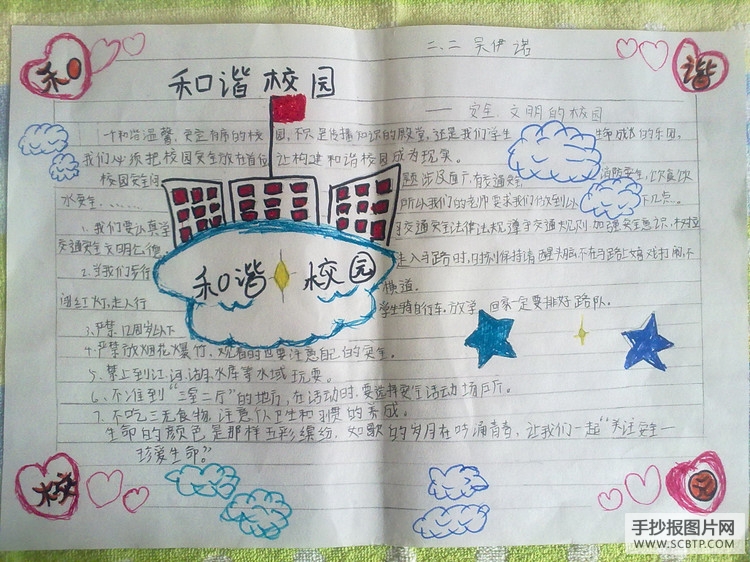 和
谐
二、二 吴伊诺
和谐校园
——安全、文明的校园
一个和谐温馨、安全有序的校园，不只是传播知识的殿堂，还是我们学生 生命成长的乐园，
我们必须把校园安全放在首位 让构建和谐校园成为现实。
校园安全问 题涉及面广，有交通安全 消防安全，饮食饮
水安全……… 所以我们的老师要求我们做到以 下几点。
1、我们要认真学 习交通安全法律法规，遵守交通规则，加强安全意识，树立
交通安全文明公德
2、当我们步行 走入马路时，时刻保持清醒头脑，不在马路上嬉戏打闹，不
横道。
闯红灯，走人行
3、严禁12周岁以下 学生骑自行车。放学 回家一定要排好路队。
4、严禁放烟花爆竹，观看时也要注意自己的安全。
5、禁止到江、河、湖、水库等水域玩耍。
6、不准到“三室二厅”的地方，在活动时，要选择安全活动场所。
7、不吃三无食物，注意 卫生和习惯的养成。
生命的颜色是那样五彩缤纷，如歌的岁月在吟诵青春，让我们一起“关注安全—
珍爱生命。”
和谐 校园
校
园
手抄报图片网
WWW.SCBTP.COM